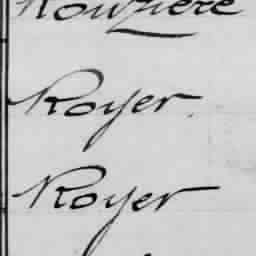 Rouzière
Royer
Royer